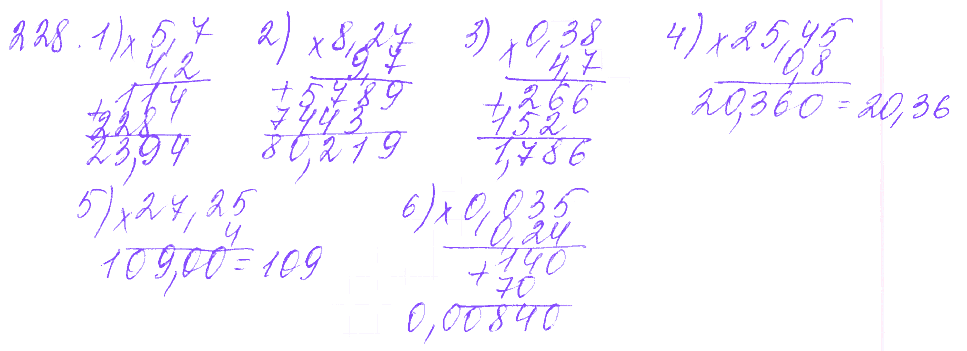 228. 1) × 5,7 2) × 8,27 3) × 0,38 4) × 25,45
4,2 9,7 4,7 0,8
+ 114 + 5789 + 266 20,360 = 20,36
228 7443 152
23,94 80,219 1,786
5) × 27,25 6) × 0,035
4 0,24
109,00 = 109 + 140
70
0,00840